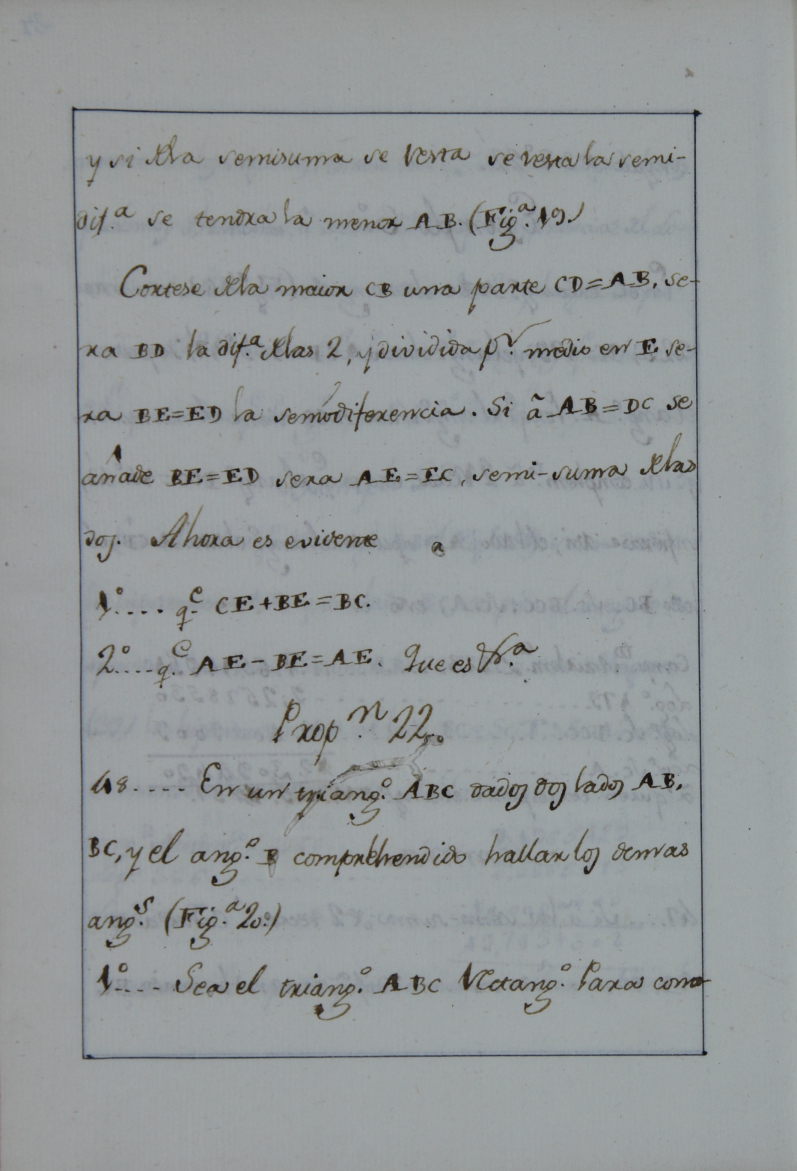 y si dela semisuma se resta se resta la semi-
dif.ª se tendra la menor AB. (Fig.ª 19.)
Cortese dela maior CB una parte CD=AB, se-
ra BD la dif.ª delas 2, y dividida p.r medio en E se-
ra BE=ED la semidiferencia. Si â AB=DC se
añade BE=ED sera AE=EC, semi-suma delas
dos. Ahora es evidente a
1º.... q.e CE+BE=BC.
2º.... q.e AE-BE=AE. Que es &.ª
Prop.n 22.
48.... En un triang.º ABC dados dos lados AB,
BC, y el ang.º B comprehendido hallar los demas
ang.s (Fig.ª 20.)
1º.... Sea el triang.º ABC Rectang.º Para como